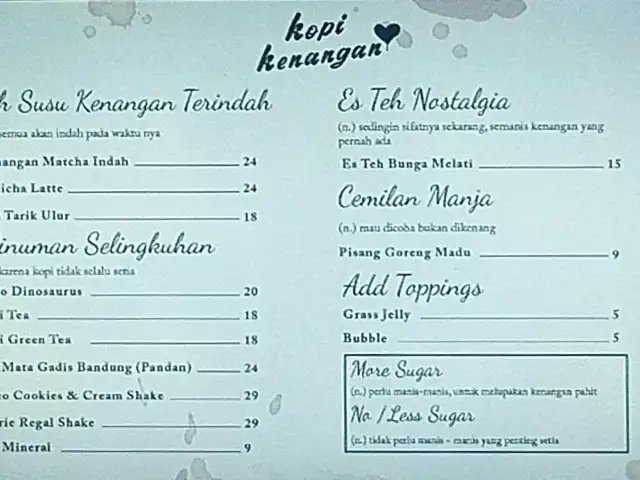 kopi
kenangan
h Susu Kenangan Terindah
semua akan indah pada waktu nya
nangan Matcha Indah 24
icha Latte 24
Tarik Ulur 18
inuman Selingkuhan
karena kopi tidak selalu setia
o Dinosaurus 20
i Tea 18
i Green Tea 18
Mata Gadis Bandung (Pandan) 24
eo Cookies & Cream Shake 29
rie Regal Shake 29
Mineral 9
Es Teh Nostalgia
(n.) sedingin sifatnya sekarang, semanis kenangan yang
pernah ada
Es Teh Bunga Melati 15
Cemilan Manja
(n.) mau dicoba bukan dikenang
Pisang Goreng Madu 9
Add Toppings
Grass Jelly 5
Bubble 5
More Sugar
(n.) perlu manis-manis, untuk melupakan kenangan pahit
No / Less Sugar
(n.) tidak perlu manis - manis yang penting setia